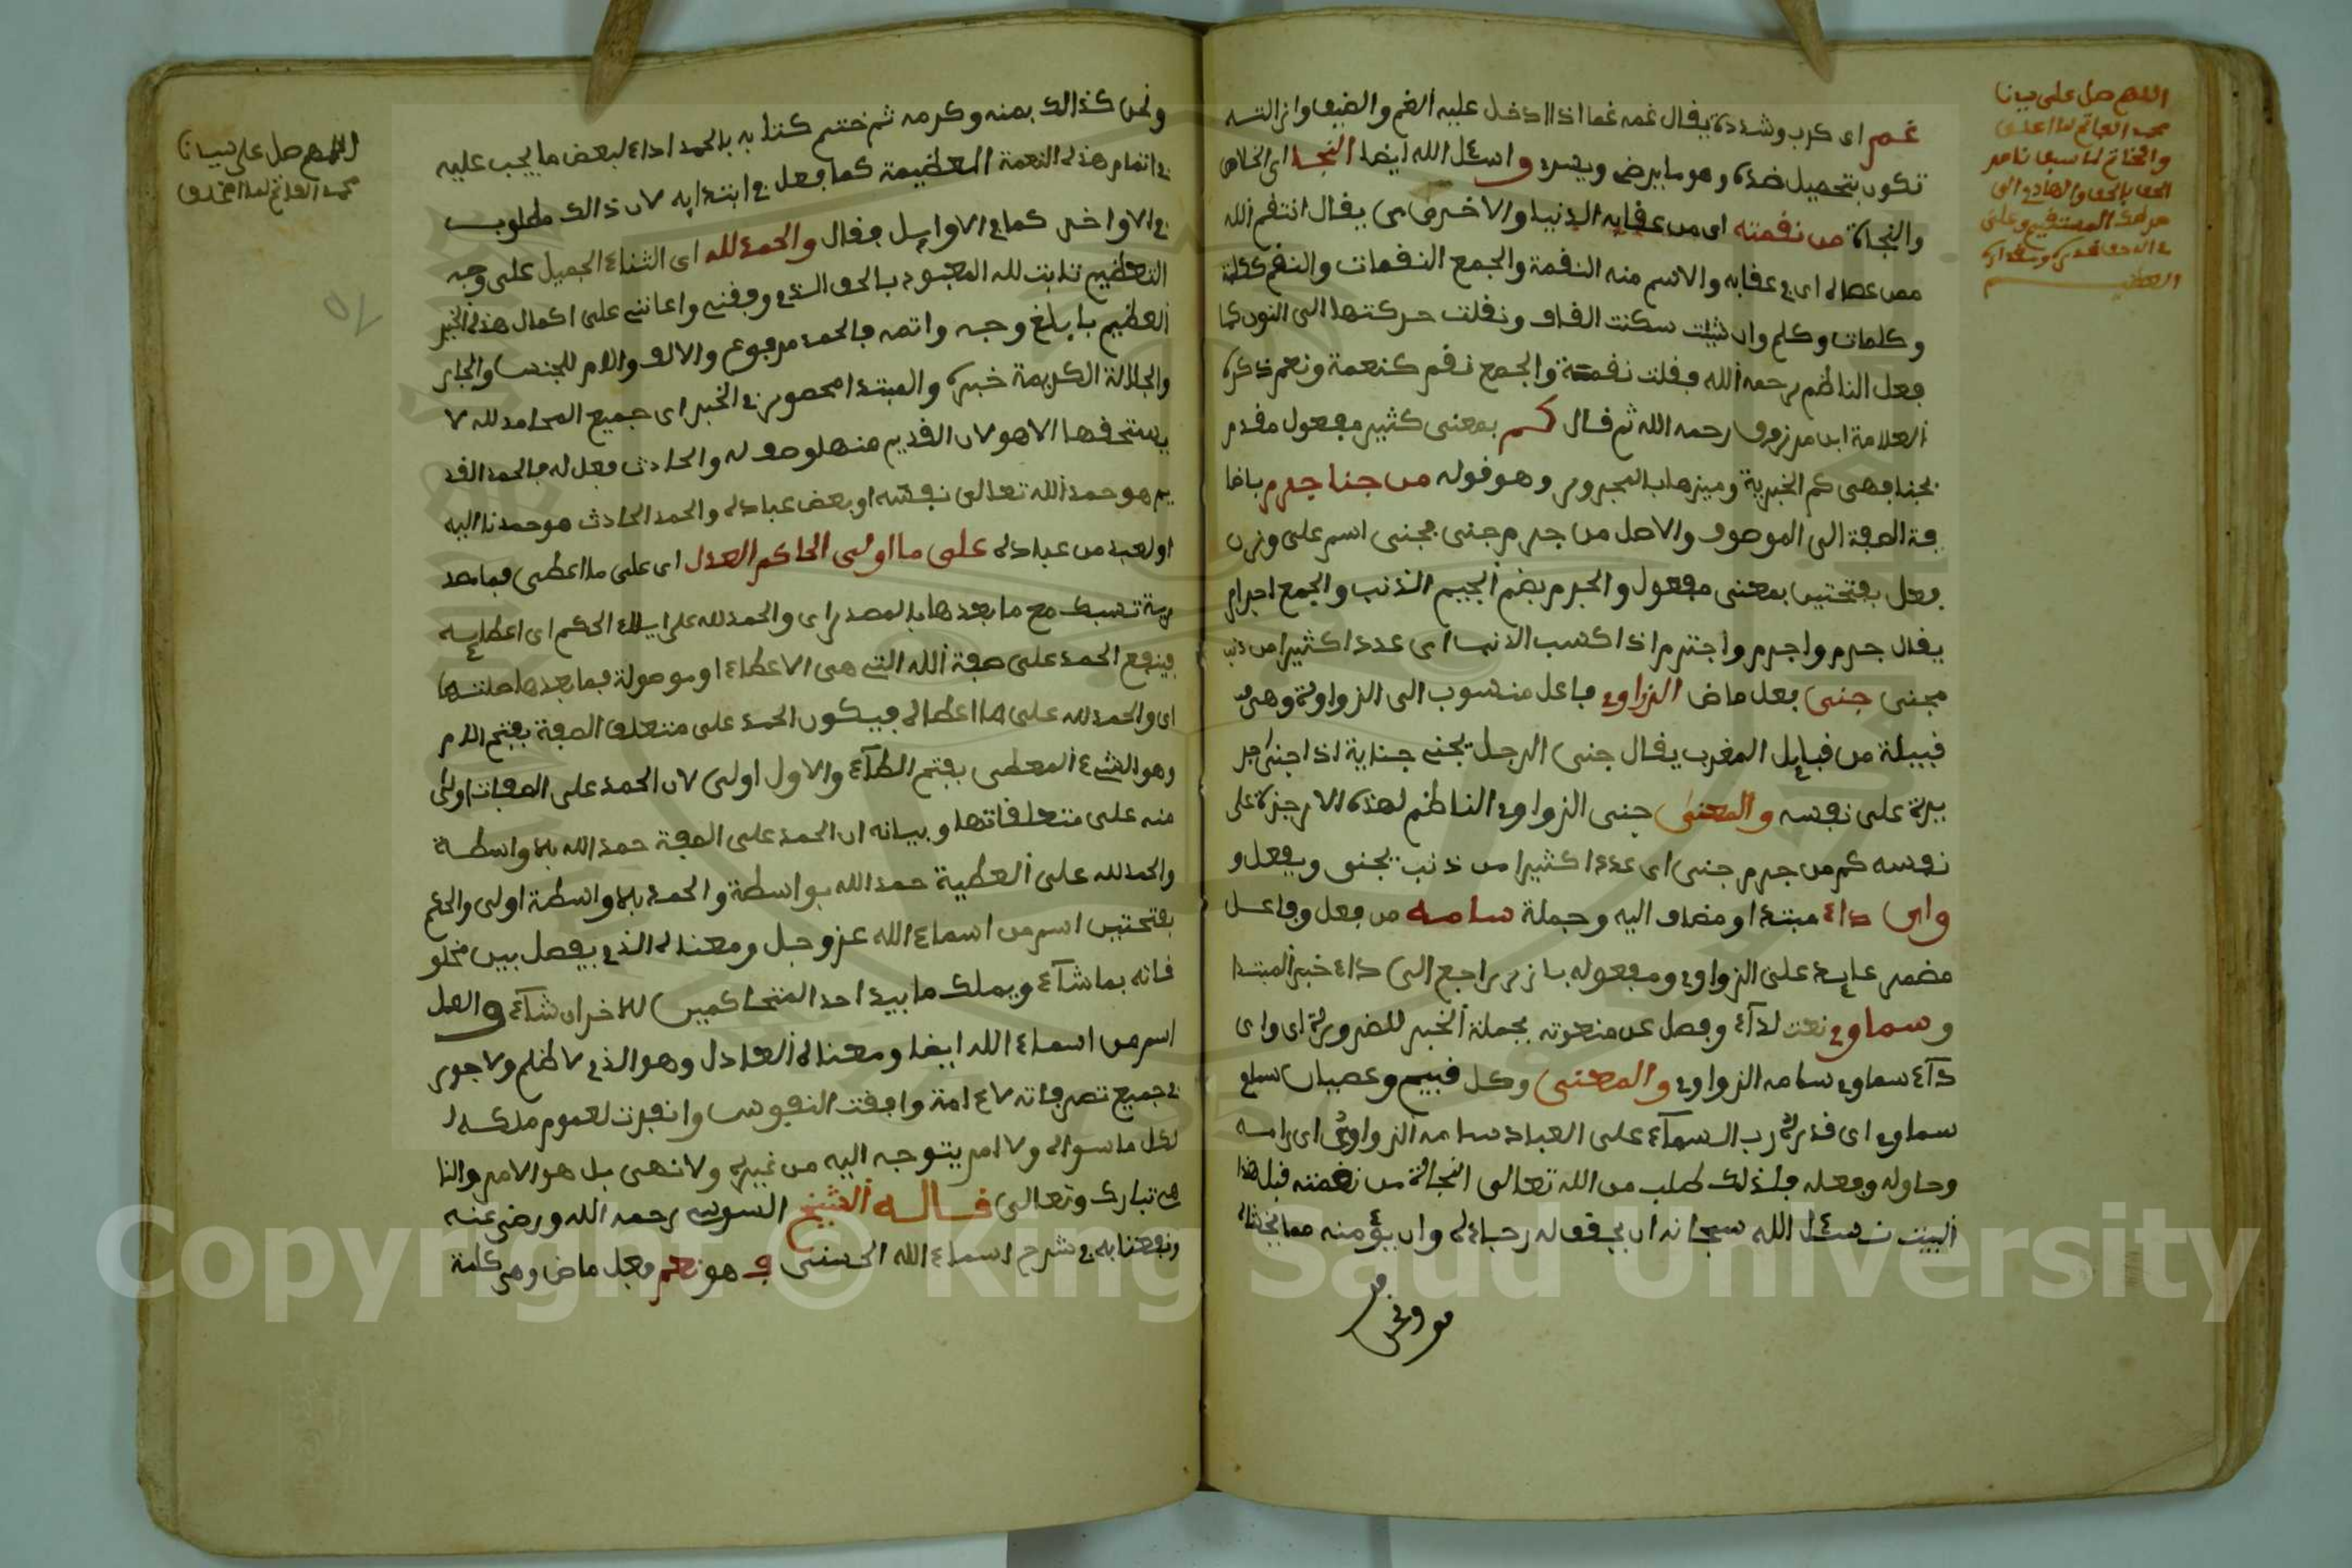 غم اى كرب وشدة يقال غمه غما اذا ادخل عليه الغم والضيق وازالته
تكون بتحصيل ضده وهو ما يرضى ويسره واسئل الله ايضا النجا اى الخلاص
والنجاة من نقمته اى من عقابه الدنيا والاخرى يقال انتقم الله
ممن عصاه اى عاقبه والاسم منه النقمة والجمع النقمات والنقم ككلمة
وكلمات وكلم وان شئت سكنت القاف ونقلت حركتها الى النون كما
فعل الناظم رحمه الله فقلت نقمة والجمع نقم كنعمة ونعم ذكره
العلامة ابن مرزوق رحمه الله ثم قال كم بمعنى كثير مفعول مقدم
بجنا فهى كم الخبرية ومميزها المجرور وهو قوله من جنا جرم باضا
فة الصفة الى الموصوف والاصل من جرم جنى فجنى اسم على وزن
فعل بفتحتين بمعنى مفعول والجرم بضم الجيم الذنب والجمع اجرام
يقال جرم واجرم واجترم اذا اكتسب الاثم اى عددا كثيرا من ذنب
مجنى جنى فعل ماض الزواوى فاعل منسوب الى الزواوة وهى
قبيلة من قبايل المغرب يقال جنى الرجل يجنى جناية اذا اجنى جر
يرة على نفسه والمعنى جنى الزواوى الناظم لهذه الارجزة على
نفسه كم من جرم جنى اى عددا كثيرا من ذنب يجنى ويفعل و
واى داء مبتدا ومضاف اليه وجملة سامه من فعل وفاعل
مضمر عايد على الزواوى ومفعوله بارز راجع الى داء خبر المبتدا
وسماوى نعت لداء وفصل عن منعوته بجملة الخبر للضرورة اى واى
داء سماوى سامه الزواوى والمعنى وكل قبيح وعصيان
سماوى اى قدره رب السماء على العباد سامه الزواوى اى رامه
وحاوله وفعله فلذلك طلب من الله تعالى النجاة من نقمته قبل هذا
البيت نسئل الله سبحانه ان يحقق له رجاءه وان يؤمنه مما يخشاه
ونحن
اللهم صل على سيدنا
محمد الفاتح لما اغلق
والخاتم لما سبق ناصر
الحق بالحق والهادى الى
صراطك المستقيم وعلى
اله حق قدره ومقداره
العظيم
ونحن كذالك بمنه وكرمه ثم ختم كتابه بالحمد اداء لبعض ما يجب عليه
فى اتمام هذه النعمة العظيمة كما فعل فى ابتدايه لان ذالك مطلوب
فى الاواخر كما فى الاوايل فقال والحمد لله اى الثناء الجميل على وجه
التعظيم ثابت لله المعبود بالحق الذى وفقنى واعاننى على اكمال هذه الخير
العظيم بابلغ وجه واتمه فالحمد مرفوع والالف واللام للجنس والجار
والجلالة الكريمة خبره والمبتدا محصور فى الخبر اى جميع المحامد لله لا
يستحقها الا هو لان القديم منها وصف له والحادث فعل له فالحمد القد
يم هو حمد الله تعالى نفسه او بعض عباده والحمد الحادث هو حمدنا اليه
او لعبد من عباده على ما اولى الحاكم العدل اى على ما اعطى فما مصد
رية تسبك مع ما بعدها بالمصدر اى والحمد لله على ايلاء الحكم اى اعطايه
فيقع الحمد على صفة الله التى هى الاعطاء او موصولة فما بعدها صلتها
اى والحمد لله على ما اعطاه فيكون الحمد على متعلق الصفة بفتح اللام
وهو الشيء المعطى بفتح الطاء والاول اولى لان الحمد على الصفات اولى
منه على متعلقاتها وبيانه ان الحمد على الصفة حمد الله بلا واسطة
والحمد لله على العطية حمد الله بواسطة والحمد بلا واسطة اولى والحكم
بفتحتين اسم من اسماء الله عز وجل ومعناه الذى يفصل بين مخلو
قاته بما شاء ويملك ما بيد احد المتحاكمين للاخر ان شاء والعدل
اسم من اسماء الله ايضا ومعناه العادل وهو الذى لا ظلم ولا جور
فى جميع تصرفاته لاءامة وافقت النفوس وانفرت لعموم ملكه
لكل ما سواه ولا امر يتوجه اليه من غيره ولا نهى بل هو الامر والنا
هى تبارك وتعالى قاله الشيخ السنوسى رحمه الله ورضى عنه
ونفعنا به فى شرح اسماء الله الحسنى وهو نعم فعل ماض وهى كلمة
اللهم صل على سيدنا
محمد الفاتح لما اغلق